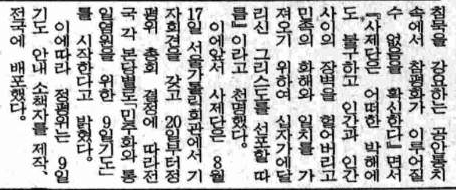 침묵을 강요하는 공안통치
속에서 참평화가 이루어질
수 없음을 확신한다」면서
「사제단은 어떠한 박해에
도 불구하고 인간과 인간
사이의 장벽을 헐어버리고
민족의 화해와 일치를 가
져오기 위하여 십자가에달
리신 그리스도를 선포할 따
름」이라고 천명했다.
이에앞서 사제단은 8월
17일 서울가톨릭회관에서 기
자회견을 갖고 20일부터정
평위 총회 결정에 따라전
국 각 본당별로「민주화와 통
일염원을 위한 9일기도」
를 시작한다고 밝혔다.
이에따라 정평위는 9일
기도 안내 소책자를 제작,
전국에 배포했다.